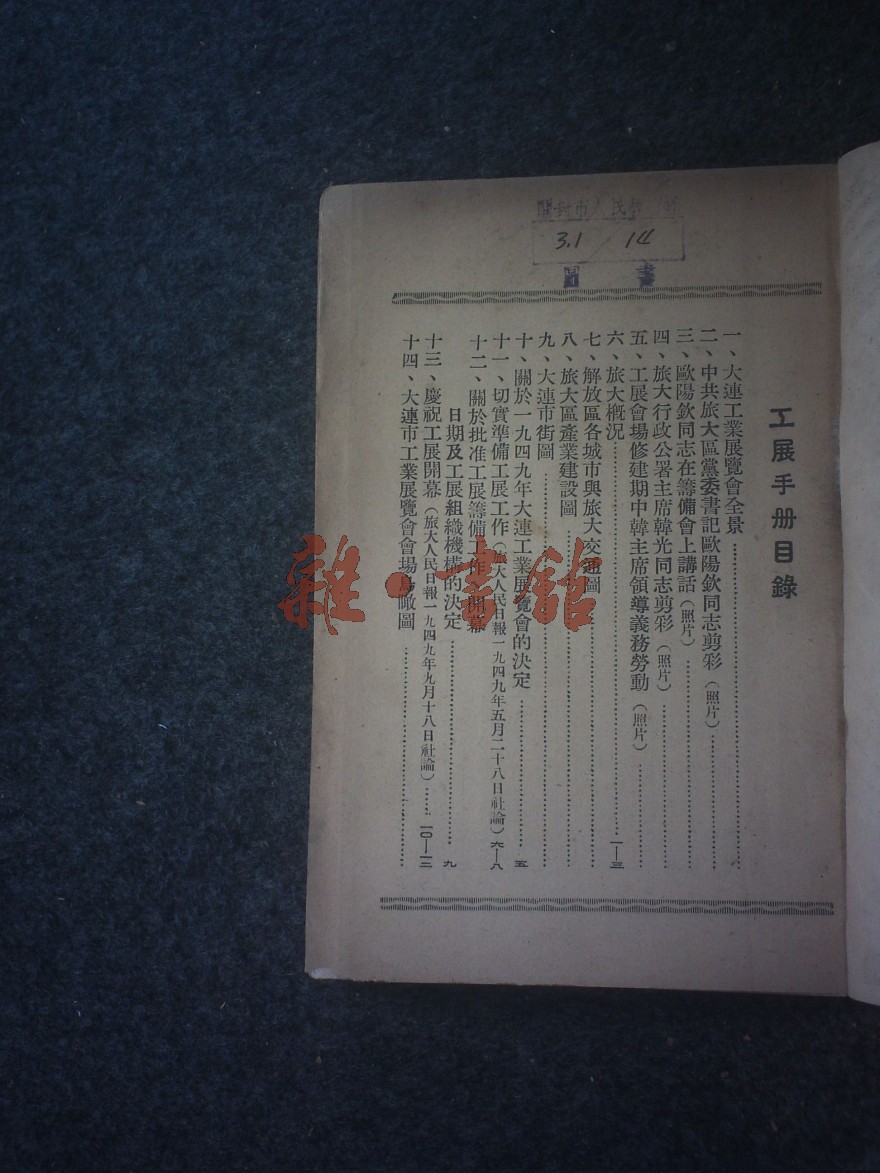 開封市人民
3.1 / 14
圖書
工展手册目錄
一、大連工業展覽會全景
二、中共旅大區黨委書記歐陽欽同志剪彩（照片）
三、歐陽欽同志在籌備會上講話（照片）
四、旅大行政公署主席韓光同志剪彩（照片）
五、工展會場修建期中韓主席領導義務勞動（照片）
六、旅大概況……一—三
七、解放區各城市與旅大交通圖
八、旅大區產業建設圖
九、大連市街圖
十、關於一九四九年大連工業展覽會的決定……五
十一、切實準備工展工作（旅大人民日報一九四九年五月二十八日社論）六—八
十二、關於批准工展籌備工作、開幕
日期及工展組織機構的決定……九
十三、慶祝工展開幕（旅大人民日報一九四九年九月十八日社論）……一〇—一二
十四、大連市工業展覽會會場鳥瞰圖
雜·書館